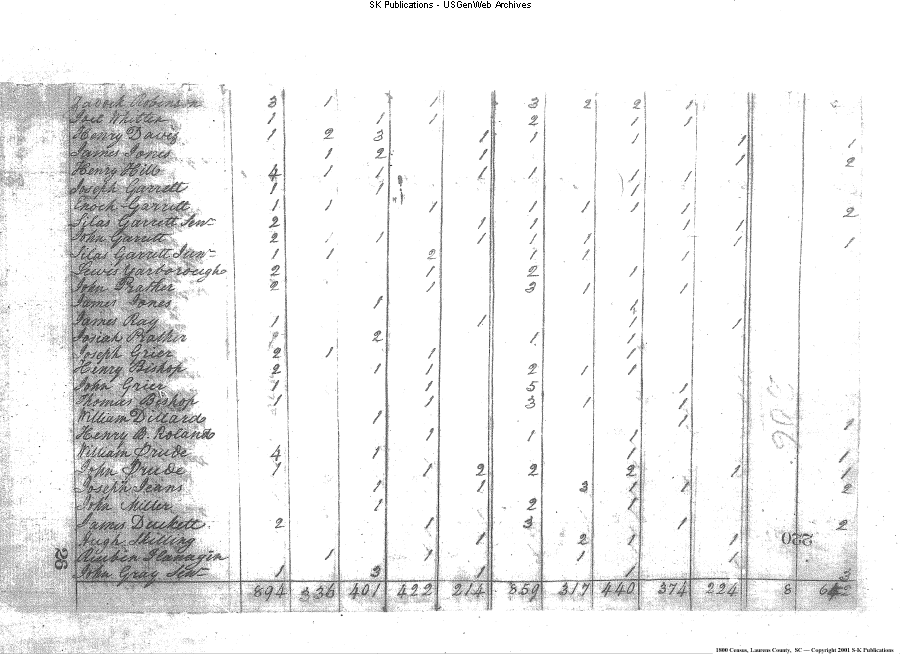 SK Publications - USGenWeb Archives
Robinson 3 1 1 3 2 2 1
1 1 1 2 1 1
Henry Davis 1 2 3 1 1 1 1 1
James Jones 1 2 1 1 2
Henry Hill 4 1 1 1 1 1 1
Joseph Garrett 1 1 1
Enoch Garrett 1 1 1 1 1 1 1 2
Silas Garrett Senr 2 1 1 1 1
John Garrett 2 1 1 1 1 1 1 1
Silas Garrett Junr 1 1 2 1 1 1
Lewis Yarborough 2 1 2 1
John Prather 2 1 3 1 1
James Jones 1 1
James Ray 1 1 1 1
Josiah Prather 2 1 1
Joseph Grier 2 1 1 1
Henry Bishop 2 1 1 2 1 1
John Grier 1 1 5 1
Thomas Bishop 1 1 3 1 1
William Dillard 1 1 1
Henry B. Roland 1 1 1
William Prude 4 1 1 1
John Prude 1 1 2 2 2 1 1
Joseph Jeans 1 1 3 1 1 2
John Miller 1 2 1
James Duckett 2 1 3 1 2
Hugh 1 2 1 1
Reuben Flanagin 1 1 1 1
John Gray Senr 1 3 1 1 3
894 336 401 422 214 859 317 440 374 224 8
26
220
1800 Census, Laurens County, SC — Copyright 2001 S-K Publications